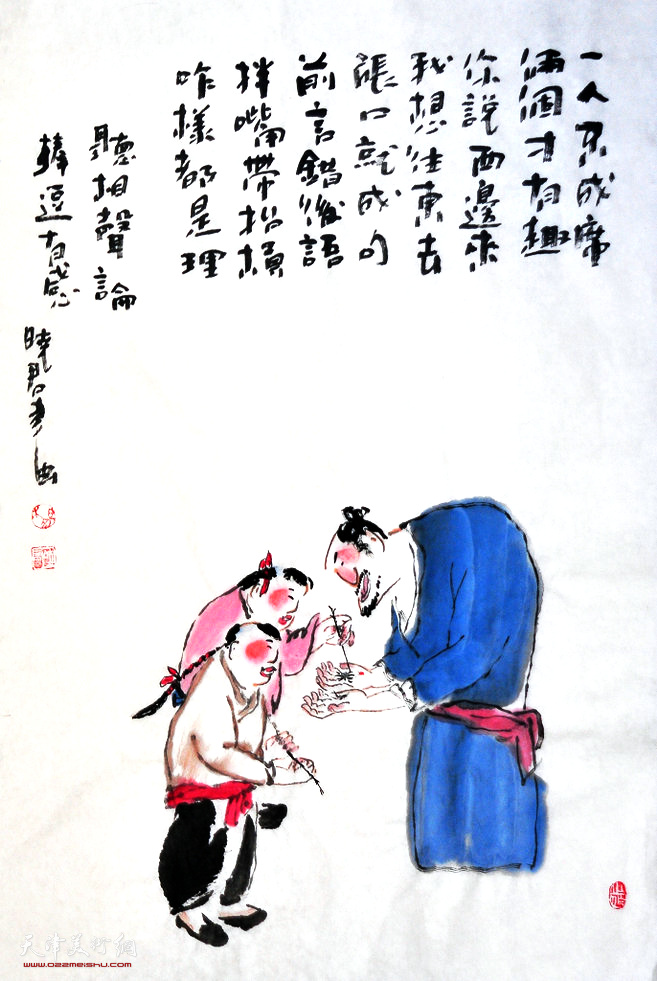 一人不成席
两個才有趣
你説西邊來
我想往東去
張口就成句
前言錯後語
拌嘴帶抬槓
咋樣都是理
聽相聲論
捧逗有感
曉君畫
天津美术网
www.022meishu.com